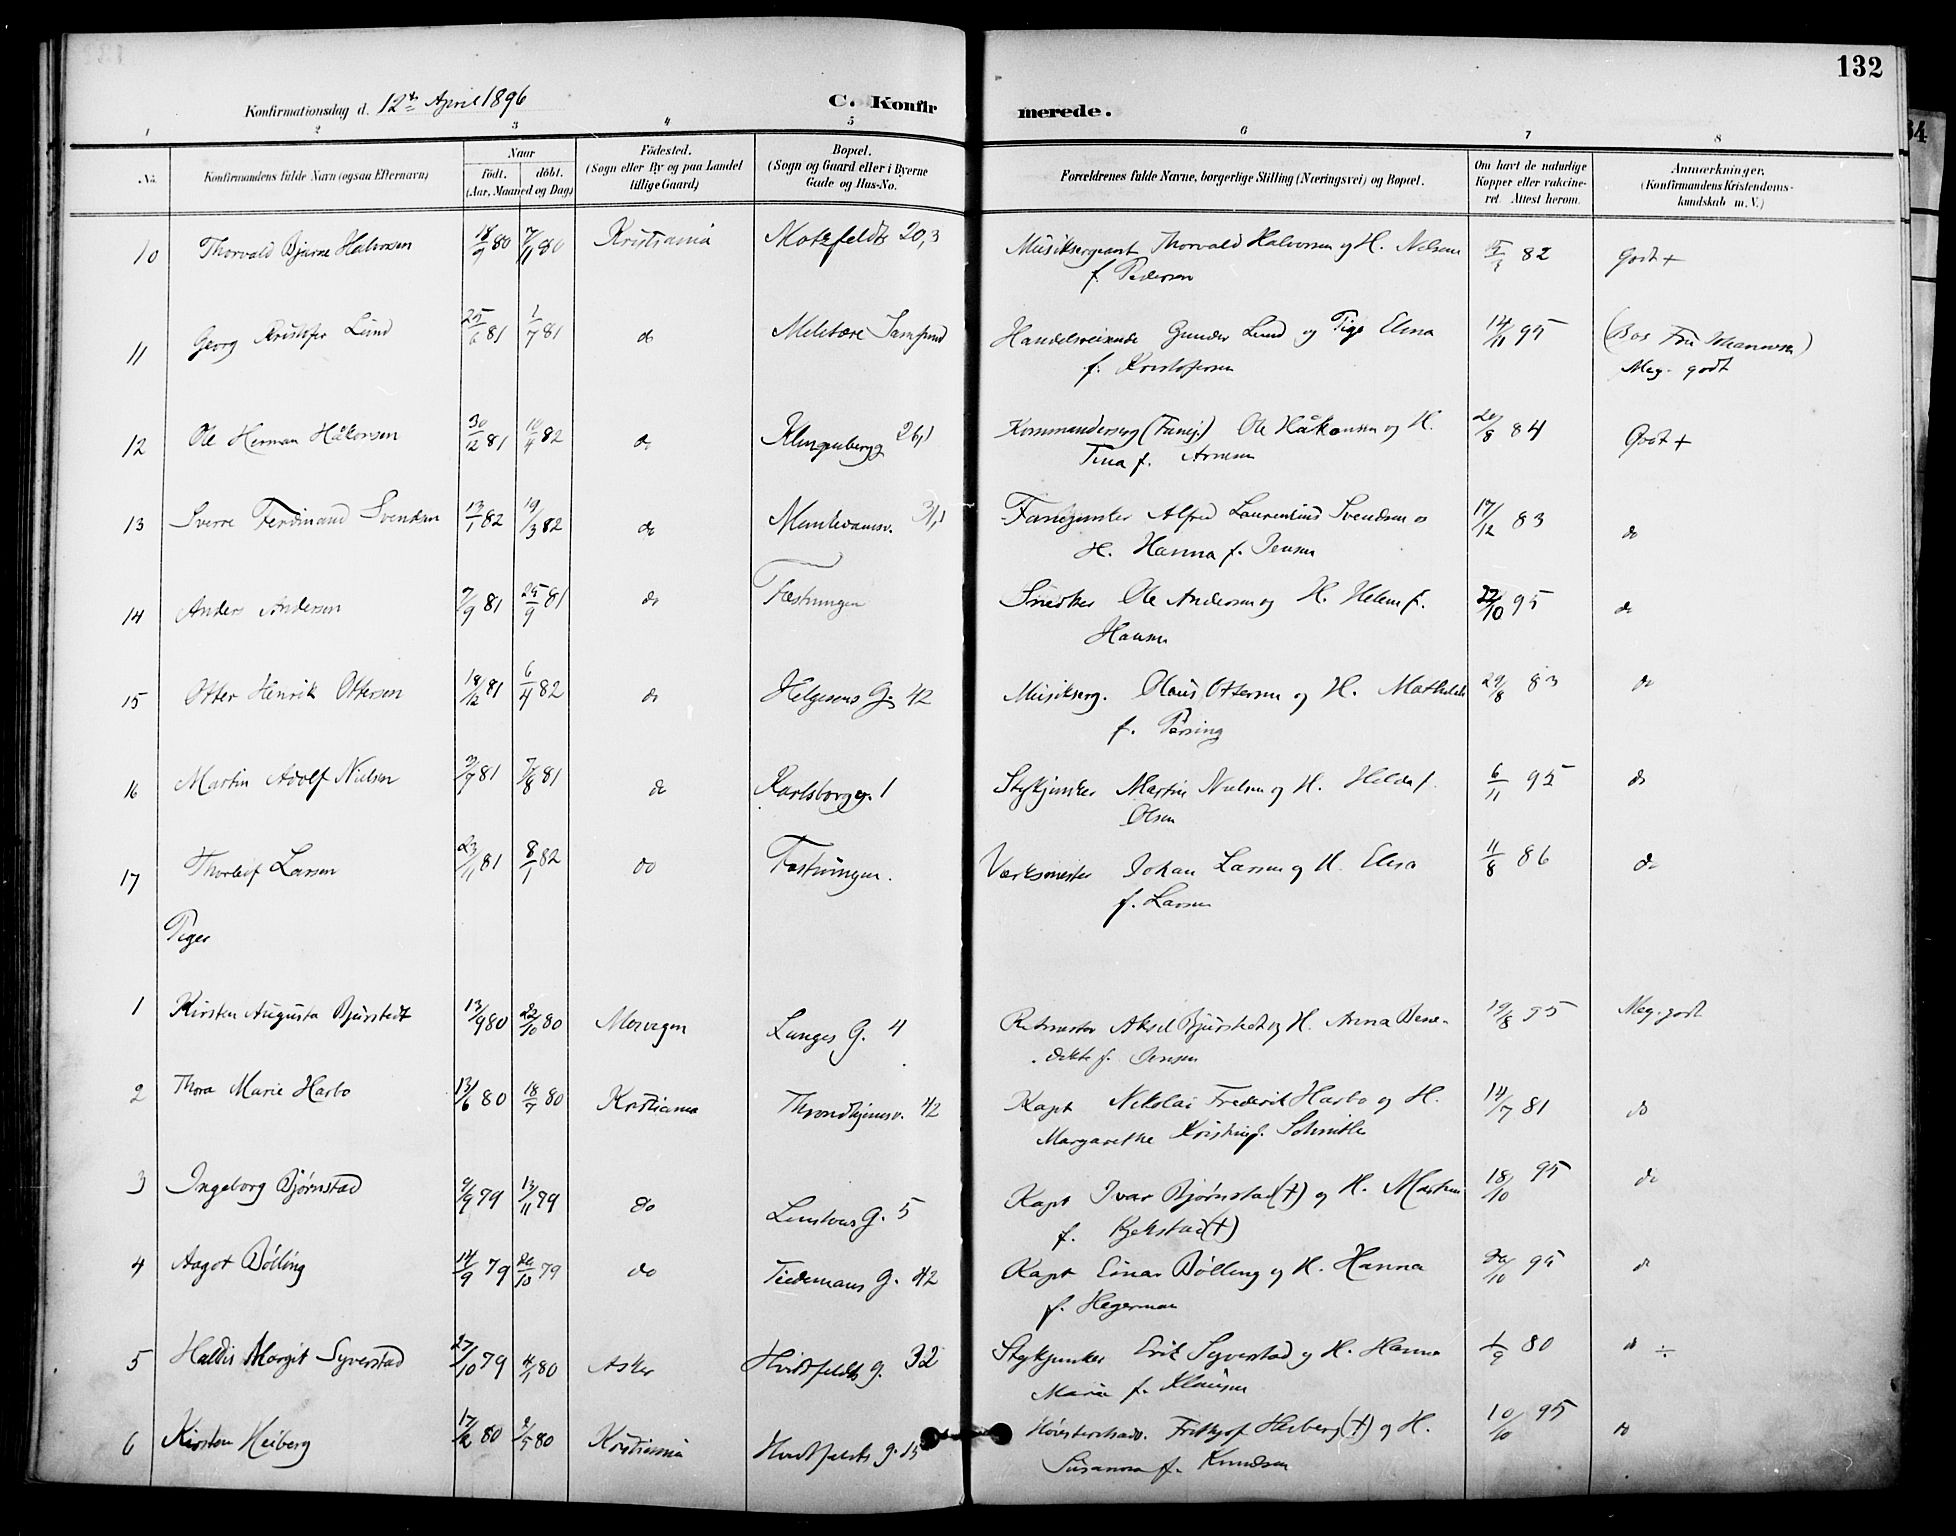 132
Konfirmationsdag d. 12te April 1896
C. Konfirmerede.
1 2 3 4 5 6 7 8
No. Konfirmandens fulde Navn (ogsaa Efternavn) Naar födt. döbt. (Aar, Maaned og Dag) Födested. (Sogn eller By og paa Landet tillige Gaard) Bopæl. (Sogn og Gaard eller i Byerne Gade og Hus-No. Forældrenes fulde Navne, borgerlige Stilling (Næringsvei) og Bopæl. Om havt de naturlige Kopper eller vakcineret. Attest herom. Anmærkninger. (Konfirmandens Kristendomskundskab m. V.)
10 Thorvald Bjarne Halvorsen 18/9 80 7/11 80 Kristiania Motzfeldts 20,3 Musiksergeant Thorvald Halvorsen og H. 82 Godt +
f. Pedersen
11 Georg Kristofer Lund 25/6 81 1/7 81 do Militære Samfund Handelsreisende Gunder Lund og Pige Elina 14/11 95 (Hos Fru Johannesen)
f. Kristofersen Meg. godt
12 Ole Herman Håkonsen 30/12 81 10/4 82 do Klingenbergg 26,1 Kommandersog (Fanej.) Ole Håkonsen og H. 84 Godt +
Tina f. Arnesen
13 Sverre Ferdinand Svendsen 13/1 82 19/3 82 do Munkedamsv. 3/1 Fanejunker Alfred Laurentius Svendsen og 17/12 83 do
H. Hanna f. Jensen
14 Anders Andersen 7/9 81 25/9 81 do Fæstningen Snedker Ole Andersen og H. Helene f. 22/10 95 do
Hansen
15 Otter Henrik Ottersen 18/12 81 6/4 82 do Helgesens G. 42 Musikserg. Olaus Ottersen og H. Mathilde 29/8 83 do
f.
16 Martin Adolf Nielsen 3/7 81 7/8 81 do Karlsborgg. 1 Stykjunker Martin Nielsen og H. Helda f. 6/11 95 do
Olsen
17 Thorleif Larsen 23/11 81 8/1 82 do Fæstningen. Værksmester Johan Larsen og H. Elisa 11/8 86 do
f. Larsen
Piger
1 Kirsten Augusta Bjurstedt 13/9 80 22/10 80 Langes G. 4 Ritmester Aksel Bjurstedt og H. Anna Bene- 19/8 95 Meg. godt
dikte f. Jensen
2 Thora Marie Harbo 13/6 80 18/7 80 Kristiania Throndhjemsv. 42 Kapt Nikolai Frederik Harbo og H. 14/7 81 do
Margarethe Kristine f. Schnitler
3 Ingeborg Bjørnstad 9/9 79 13/11 79 do G. 5 Kapt Ivar Bjørnstad (†) og H. 18/10 95 do
f. (†)
4 Aagot Bölling 14/9 79 26/10 79 do Tiedemans G. 42 Kapt Einar Bölling og H. Hanna 95 do
f. Hegerman
5 Haldis Margit Syverstad 27/10 79 4/1 80 Asker Hvidtfeldts g. 32 Stykjunker Erik Syverstad og H. Hanna 1/9 80 do ÷
Marie f. Klausen
6 Kirsten Heiberg 17/2 80 2/5 80 Kristiania Hvidtfeldts g. 15 Frithjof Heiberg (†) og H. 10/10 95 do
Susanna f. Knudsen